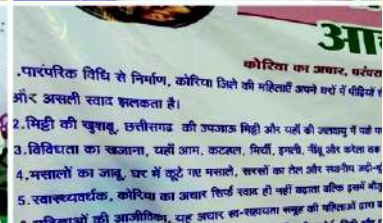 आ
कोरिया का अचार, परंपरा
.पारंपरिक विधि से निर्माण, कोरिया जिले की महिलाएँ अपने घरों में पीढ़ियों
और असली स्वाद झलकता है।
2.मिट्टी की खुशबू, छत्तीसगढ़ की उपजाऊ मिट्टी और यहाँ की जलवायु में पले
3.विविधता का खजाना, यहाँ आम, कटहल, मिर्ची, इमली, नींबू और करेला तक
4.मसालों का जादू, घर में कूटे गए मसाले, सरसों का तेल और स्थानीय जड़ी-बू
5.स्वास्थ्यवर्धक, कोरिया का अचार सिर्फ स्वाद ही नहीं बढ़ाता बल्कि इसमें मौजू
की आजीविका, यह अचार स्व-सहायता समूह की महिलाओं द्वारा